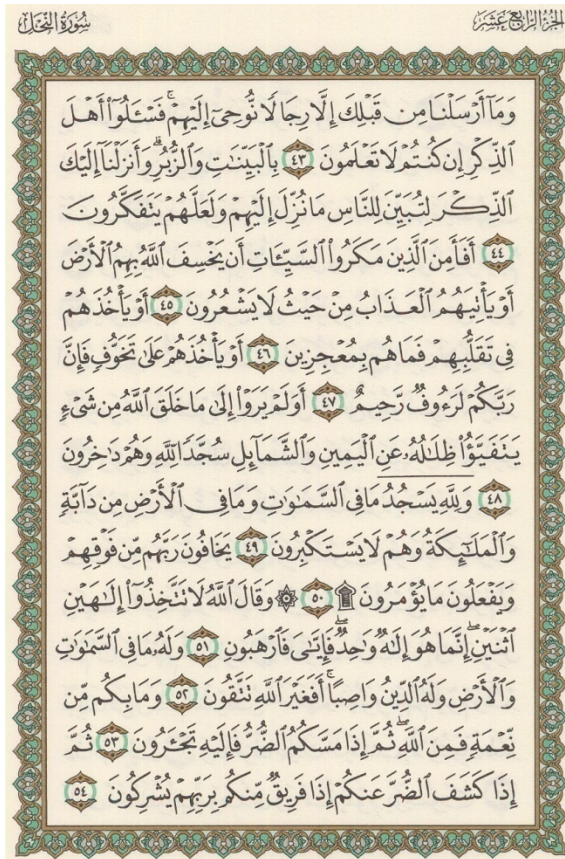 سُورَةُ النَّحۡلِ
الجُزۡءُ الرَّابِعَ عَشَرَ
وَمَآ أَرۡسَلۡنَا مِن قَبۡلِكَ إِلَّا رِجَالٗا نُّوحِيٓ إِلَيۡهِمۡۖ فَسۡـَٔلُوٓاْ أَهۡلَ
ٱلذِّكۡرِ إِن كُنتُمۡ لَا تَعۡلَمُونَ ٤٣ بِٱلۡبَيِّنَٰتِ وَٱلزُّبُرِۗ وَأَنزَلۡنَآ إِلَيۡكَ
ٱلذِّكۡرَ لِتُبَيِّنَ لِلنَّاسِ مَا نُزِّلَ إِلَيۡهِمۡ وَلَعَلَّهُمۡ يَتَفَكَّرُونَ
٤٤ أَفَأَمِنَ ٱلَّذِينَ مَكَرُواْ ٱلسَّيِّـَٔاتِ أَن يَخۡسِفَ ٱللَّهُ بِهِمُ ٱلۡأَرۡضَ
أَوۡ يَأۡتِيَهُمُ ٱلۡعَذَابُ مِنۡ حَيۡثُ لَا يَشۡعُرُونَ ٤٥ أَوۡ يَأۡخُذَهُمۡ
فِي تَقَلُّبِهِمۡ فَمَا هُم بِمُعۡجِزِينَ ٤٦ أَوۡ يَأۡخُذَهُمۡ عَلَىٰ تَخَوُّفٖ فَإِنَّ
رَبَّكُمۡ لَرَءُوفٞ رَّحِيمٌ ٤٧ أَوَلَمۡ يَرَوۡاْ إِلَىٰ مَا خَلَقَ ٱللَّهُ مِن شَيۡءٖ
يَتَفَيَّؤُاْ ظِلَٰلُهُۥ عَنِ ٱلۡيَمِينِ وَٱلشَّمَآئِلِ سُجَّدٗا لِّلَّهِ وَهُمۡ دَٰخِرُونَ
٤٨ وَلِلَّهِۤ يَسۡجُدُۤ مَا فِي ٱلسَّمَٰوَٰتِ وَمَا فِي ٱلۡأَرۡضِ مِن دَآبَّةٖ
وَٱلۡمَلَٰٓئِكَةُ وَهُمۡ لَا يَسۡتَكۡبِرُونَ ٤٩ يَخَافُونَ رَبَّهُم مِّن فَوۡقِهِمۡ
وَيَفۡعَلُونَ مَا يُؤۡمَرُونَ ۩ ٥٠ ۞ وَقَالَ ٱللَّهُ لَا تَتَّخِذُوٓاْ إِلَٰهَيۡنِ
ٱثۡنَيۡنِۖ إِنَّمَا هُوَ إِلَٰهٞ وَٰحِدٞ فَإِيَّٰيَ فَٱرۡهَبُونِ ٥١ وَلَهُۥ مَا فِي ٱلسَّمَٰوَٰتِ
وَٱلۡأَرۡضِ وَلَهُ ٱلدِّينُ وَاصِبًاۚ أَفَغَيۡرَ ٱللَّهِ تَتَّقُونَ ٥٢ وَمَا بِكُم مِّن
نِّعۡمَةٖ فَمِنَ ٱللَّهِۖ ثُمَّ إِذَا مَسَّكُمُ ٱلضُّرُّ فَإِلَيۡهِ تَجۡـَٔرُونَ ٥٣ ثُمَّ
إِذَا كَشَفَ ٱلضُّرَّ عَنكُمۡ إِذَا فَرِيقٞ مِّنكُم بِرَبِّهِمۡ يُشۡرِكُونَ ٥٤